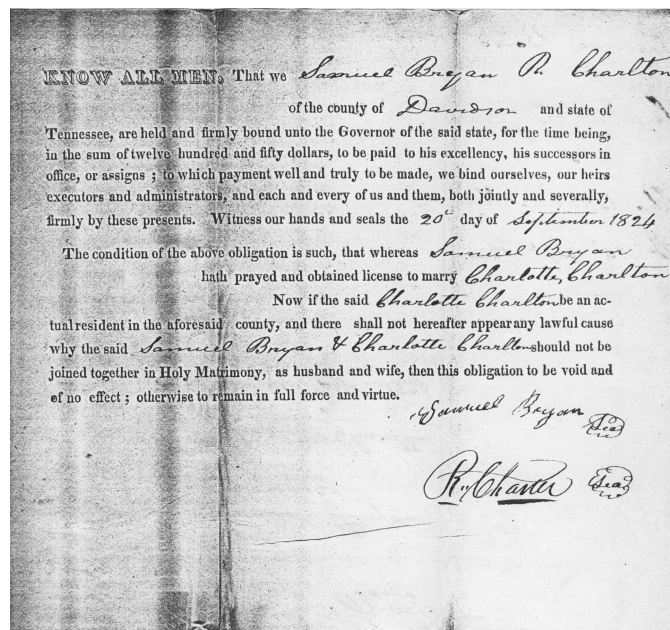 KNOW ALL MEN, That we Samuel Bryan R. Charlton
of the county of Davidson and state of
Tennessee, are held and firmly bound unto the Governor of the said state, for the time being,
in the sum of twelve hundred and fifty dollars, to be paid to his excellency, his successors in
office, or assigns ; to which payment well and truly to be made, we bind ourselves, our heirs
executors and administrators, and each and every of us and them, both jointly and severally,
firmly by these presents. Witness our hands and seals the 20th day of September 1824
The condition of the above obligation is such, that whereas Samuel Bryan
hath prayed and obtained license to marry Charlotte, Charlton
Now if the said Charlotte Charlton be an ac-
tual resident in the aforesaid county, and there shall not hereafter appear any lawful cause
why the said Samuel Bryan & Charlotte Charlton should not be
joined together in Holy Matrimony, as husband and wife, then this obligation to be void and
of no effect ; otherwise to remain in full force and virtue.
Samuel Bryan Seal
R. Seal